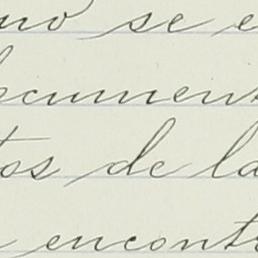 no se e
ocument
tos de la
encontr